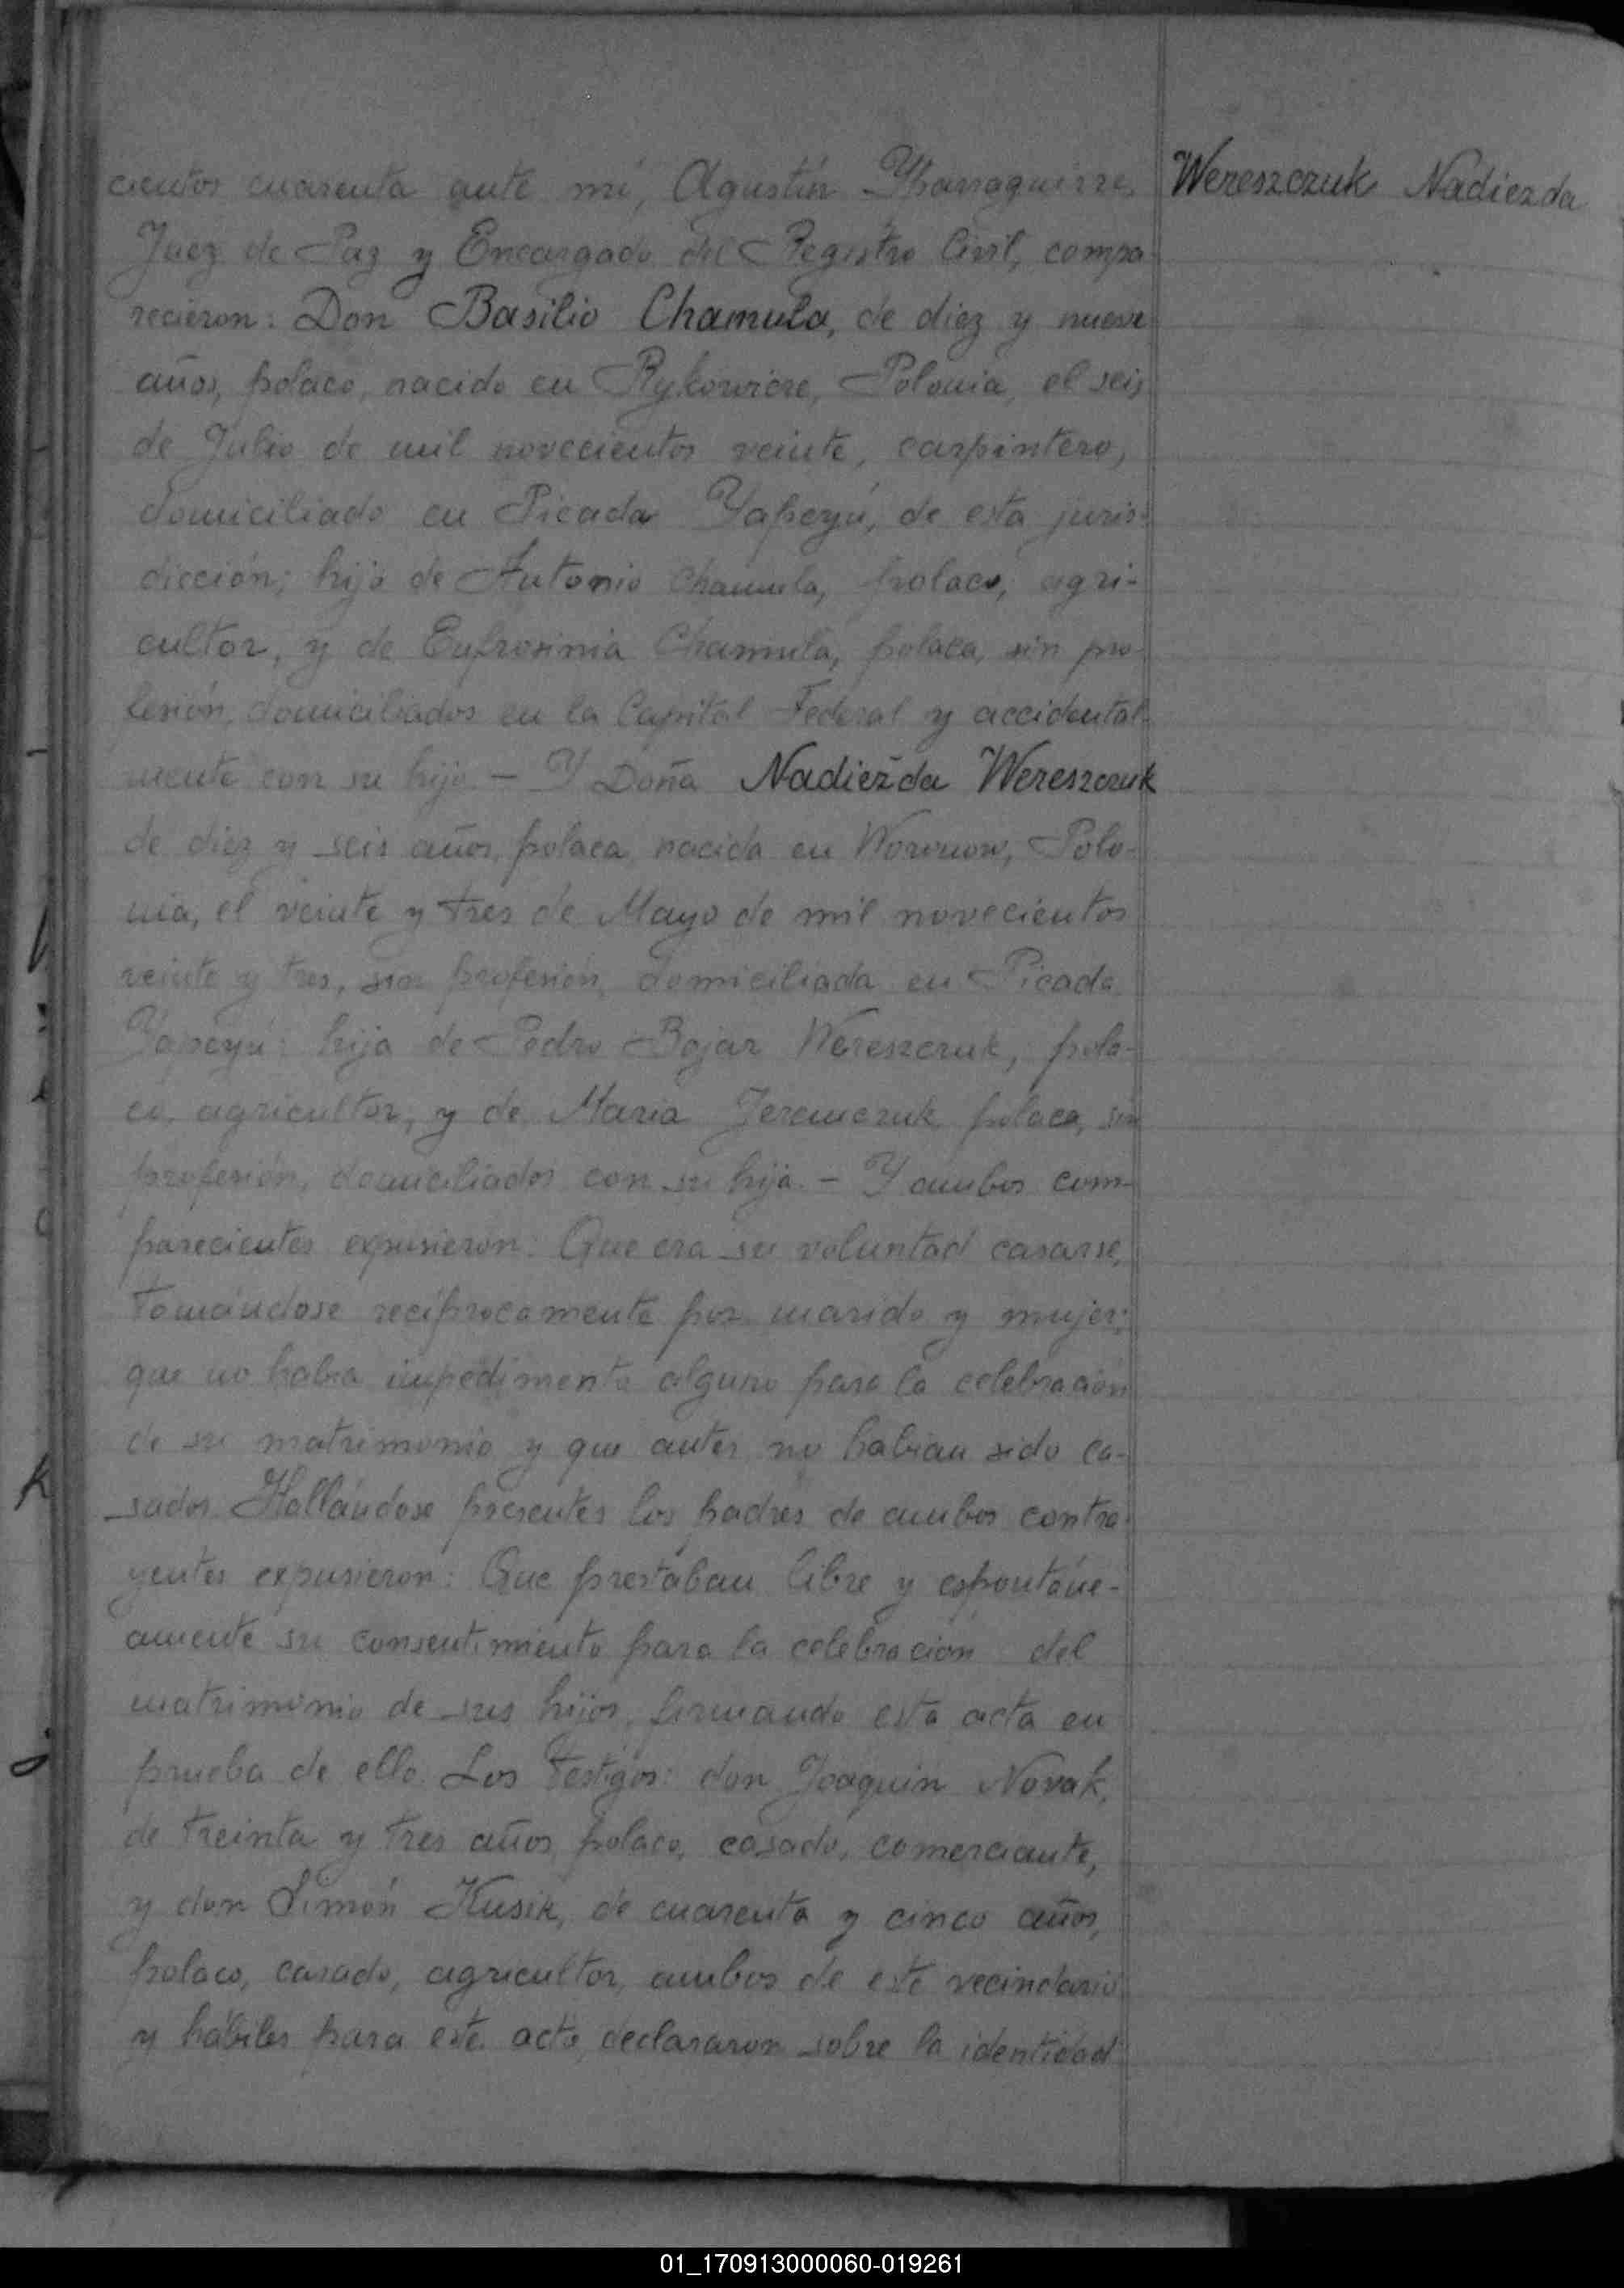 cientos cuarenta ante mí, Agustín Ybarraguirre,
Wereszczuk Nadiezda
Juez de Paz y Encargado del Registro Civil, compa
recieron: Don Basilio Chamula, de diez y nueve
años, polaco, nacido en Rykowicze, Polonia, el seis
de Julio de mil novecientos veinte, carpintero,
domiciliado en Picada Yapeyú, de esta juris-
dicción; hijo de Antonio Chamula, polaco, agri-
cultor, y de Eufrosinia Chamula, polaca, sin pro-
fesión, domiciliados en la Capital Federal y accidental-
mente con su hijo. — Y Doña Nadiežda Wereszczuk
de diez y seis años, polaca, nacida en Woronow, Polo-
nia, el veinte y tres de Mayo de mil novecientos
veinte y tres, sin profesión, domiciliada en Picada
Yapeyú; hija de Pedro Bojar Wereszczuk, pola-
co, agricultor, y de María Jeremczuk, polaca, sin
profesión, domiciliados con su hija. — Y ambos com-
parecientes expusieron: Que era su voluntad casarse,
tomándose recíprocamente por marido y mujer;
que no había impedimento alguno para la celebración
de su matrimonio y que antes no habían sido ca-
sados. Hallándose presentes los padres de ambos contra-
yentes expusieron: Que prestaban libre y espontáne-
amente su consentimiento para la celebración del
matrimonio de sus hijos, firmando esta acta en
prueba de ello. Los testigos: don Joaquín Novak,
de treinta y tres años, polaco, casado, comerciante,
y don Simón Kusik, de cuarenta y cinco años,
polaco, casado, agricultor, ambos de este vecindario
y hábiles para este acto, declararon sobre la identidad
01_170913000060-019261